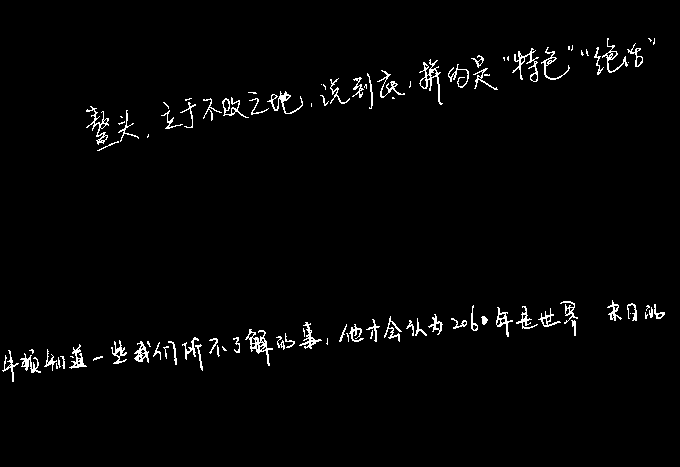 鳌头,立于不败之地,说到底,拼的是“特色”“绝活”
牛顿知道一些我们所不了解的事,他才会认为2060年是世界 末日的